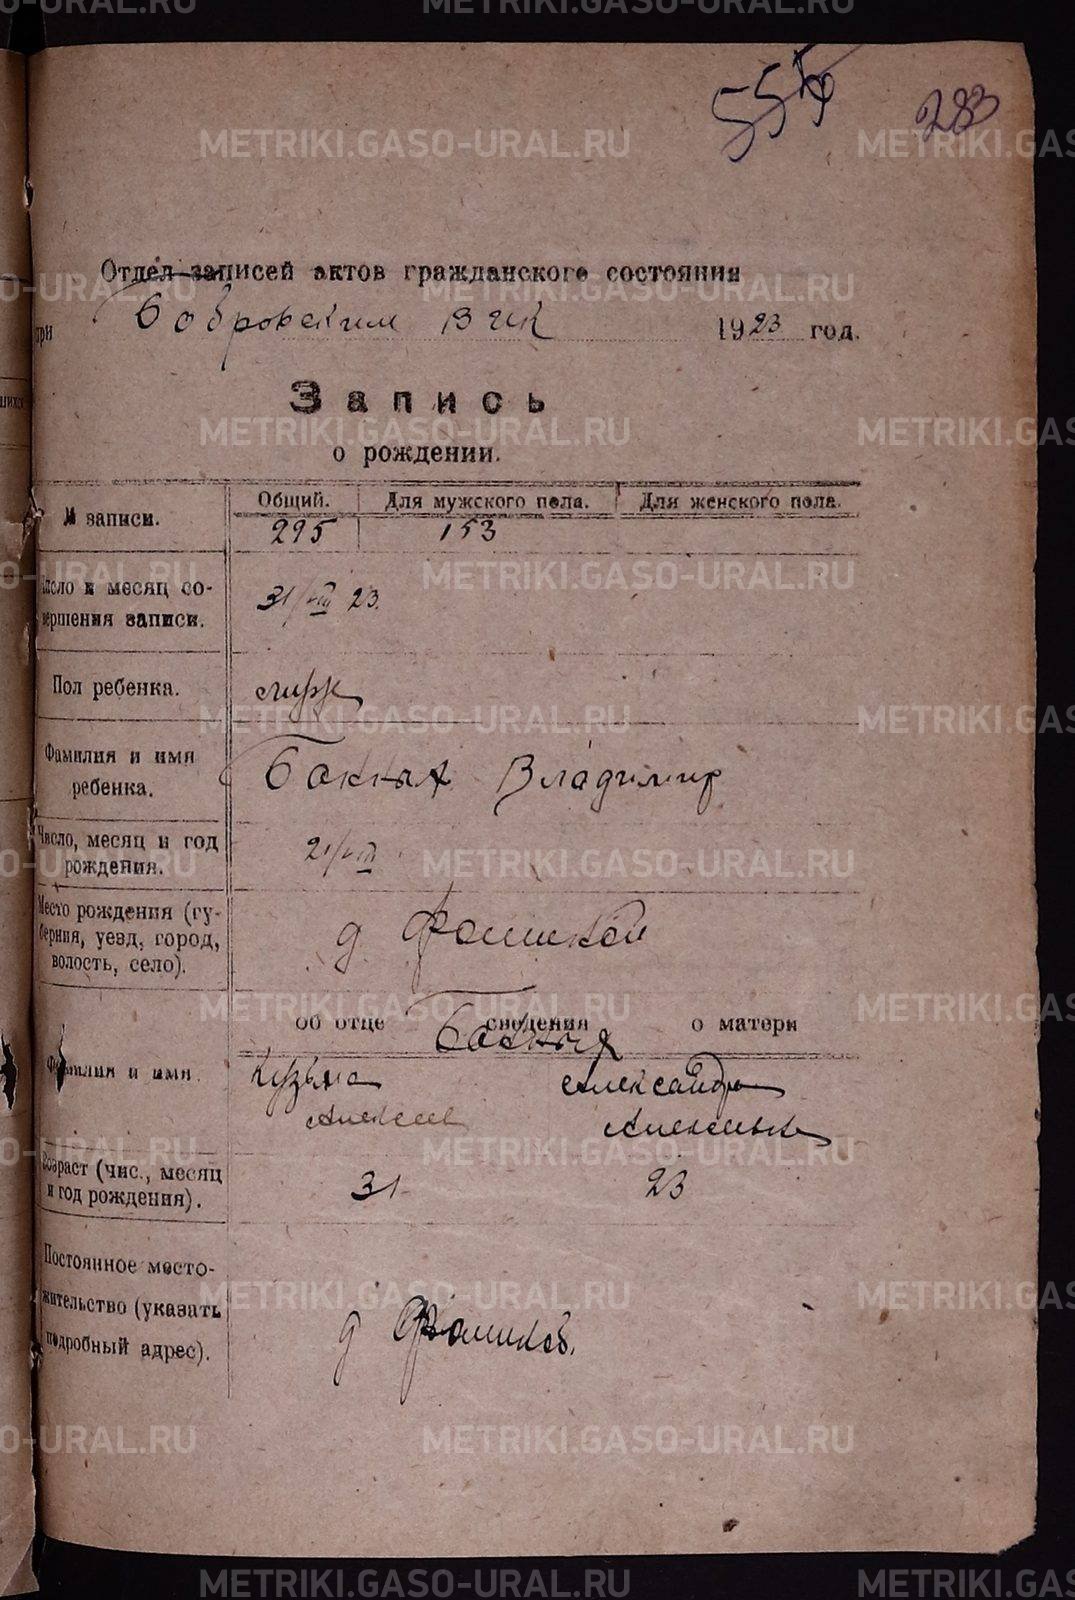 555
283
Отдел записей актов гражданского состояния
при Бобровским Вик 1923 год.
Запись
о рождении.
№ записи.
Общий. Для мужского пола. Для женского пола.
295 153
Число и месяц со-
вершения записи.
31/VIII 23.
Пол ребенка.
муж
Фамилия и имя
ребенка.
Бокных Владимир
Число, месяц и год
рождения.
21/VIII
Место рождения (гу-
берния, уезд, город,
волость, село).
д Фомикой
об отце сведения о матери
Бокных
Фамилия и имя.
Кузьма Александра
Алексеев Алексеевна
Возраст (чис., месяц
и год рождения).
31 23
Постоянное место-
жительство (указать
подробный адрес).
д
METRIKI.GASO-URAL.RU